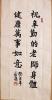 祝辛勤的老师身體
健康萬事如意